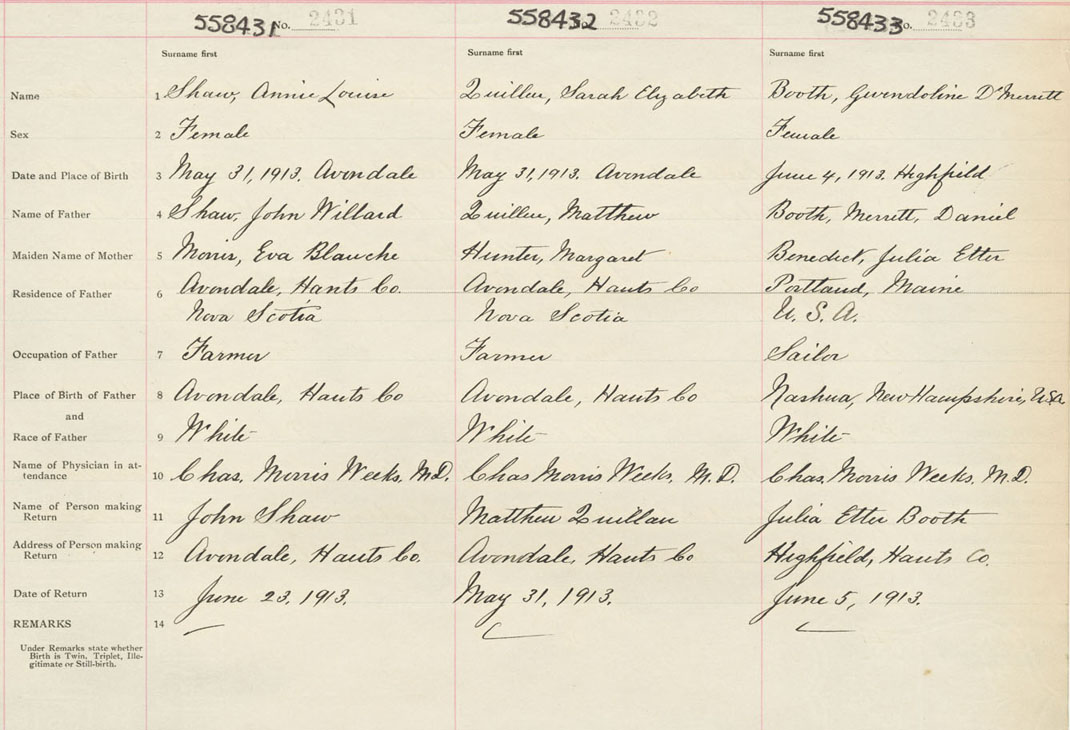 558431 No. 2431 558432 No. 2432 558433 No. 2433
Surname first Surname first Surname first
Name 1 Shaw, Annie Louise Quillen, Sarah Elizabeth Booth, Gwendoline D'Merrett
Sex 2 Female Female Female
Date and Place of Birth 3 May 31, 1913. Avondale May 31, 1913. Avondale June 4, 1913. Highfield
Name of Father 4 Shaw, John Willard Quillen, Matthew Booth, Merrett, Daniel
Maiden Name of Mother 5 Morris, Eva Blanche Hunter, Margaret Benedict, Julia Etter
Residence of Father 6 Avondale, Hants Co. Avondale, Hants Co Portland, Maine
Nova Scotia Nova Scotia U. S. A.
Occupation of Father 7 Farmer Farmer Sailor
Place of Birth of Father 8 Avondale, Hants Co Avondale, Hants Co Nashua, New Hampshire, USA
and
Race of Father 9 White White White
Name of Physician in at-
tendance 10 Chas. Morris Weeks, M.D. Chas Morris Weeks, M.D. Chas. Morris Weeks, M.D.
Name of Person making
Return 11 John Shaw Matthew Quillan Julia Etter Booth
Address of Person making
Return 12 Avondale, Hants Co. Avondale, Hants Co Highfield, Hants Co.
Date of Return 13 June 23, 1913. May 31, 1913. June 5, 1913.
REMARKS 14
Under Remarks state whether
Birth is Twin, Triplet, Ille-
gitimate or Still-birth.